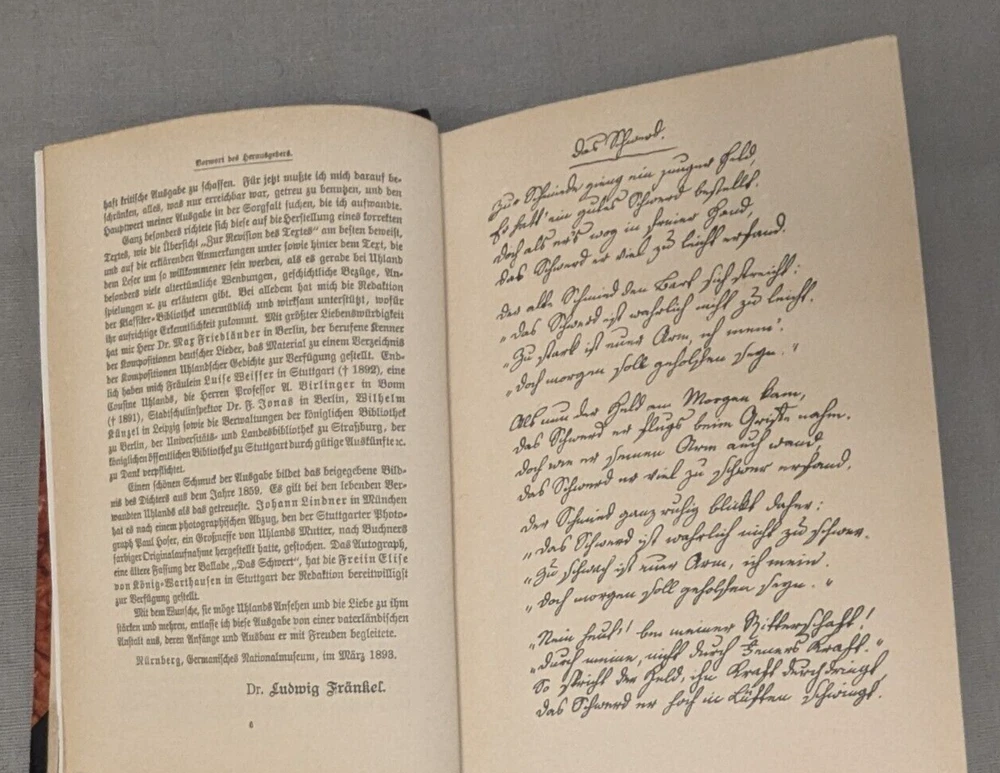 Vorwort des Herausgebers.
haft kritische Ausgabe zu schaffen. Für jetzt mußte ich mich darauf be-
schränken, alles, was nur erreichbar war, getreu zu benutzen, und den
Hauptwert meiner Ausgabe in der Sorgfalt suchen, die ich aufwandte.
Ganz besonders richtete sich diese auf die Herstellung eines korrekten
Textes, wie die Übersicht „Zur Revision des Textes“ am besten beweist,
und auf die erklärenden Anmerkungen unter sowie hinter dem Text, die
dem Leser um so willkommener sein werden, als es gerade bei Uhland
besonders viele altertümliche Wendungen, geschichtliche Bezüge, An-
spielungen ꝛc. zu erläutern gibt. Bei alledem hat mich die Redaktion
der Klassiker-Bibliothek unermüdlich und wirksam unterstützt, wofür
ihr aufrichtige Erkenntlichkeit zukommt. Mit größter Liebenswürdigkeit
hat mir Herr Dr. Max Friedländer in Berlin, der berufene Kenner
der Kompositionen deutscher Lieder, das Material zu einem Verzeichnis
der Kompositionen Uhlandscher Gedichte zur Verfügung gestellt. End-
lich haben mich Fräulein Luise Weisser in Stuttgart († 1892), eine
Cousine Uhlands, die Herren Professor A. Birlinger in Bonn
(† 1891), Stadtschulinspektor Dr. F. Jonas in Berlin, Wilhelm
Künzel in Leipzig sowie die Verwaltungen der königlichen Bibliothek
zu Berlin, der Universitäts- und Landesbibliothek zu Straßburg, der
königlichen öffentlichen Bibliothek zu Stuttgart durch gütige Auskünfte ꝛc.
zu Dank verpflichtet.
Einen schönen Schmuck der Ausgabe bildet das beigegebene Bild-
nis des Dichters aus dem Jahre 1859. Es gilt bei den lebenden Ver-
wandten Uhlands als das getreueste. Johann Lindner in München
hat es nach einem photographischen Abzug, den der Stuttgarter Photo-
graph Paul Hofer, ein Großneffe von Uhlands Mutter, nach Buchners
farbiger Originalaufnahme hergestellt hatte, gestochen. Das Autograph,
eine ältere Fassung der Ballade „Das Schwert“, hat die Freiin Elise
von König-Warthausen in Stuttgart der Redaktion bereitwilligst
zur Verfügung gestellt.
Mit dem Wunsche, sie möge Uhlands Ansehen und die Liebe zu ihm
stärken und mehren, entlasse ich diese Ausgabe von einer vaterländischen
Anstalt aus, deren Anfänge und Ausbau er mit Freuden begleitete.
Nürnberg, Germanisches Nationalmuseum, im März 1893.
Dr. Ludwig Fränkel.
6
Das Schwerd.
Zur Schmiede gieng ein junger Held,
Er hatt' ein gutes Schwerd bestellt.
Doch als ers wog in freier Hand,
Das Schwerd er viel zu leicht erfand.
Der alte Schmied den Bart sich streicht:
„Das Schwerd ist wahrlich nicht zu leicht.
„Zu stark ist euer Arm, ich mein'.
„Doch morgen soll geholfen seyn."
Als nun der Held am Morgen kam,
Das Schwerd er flugs beim Griffe nahm.
Doch wie er seinen Arm auch wand,
Das Schwerd er viel zu schwer erfand.
Der Schmied ganz ruhig blickt daher:
„Das Schwerd ist wahrlich nicht zu schwer.
„Zu schwach ist euer Arm, ich mein.
„Doch morgen soll geholfen seyn."
„Nein heut'! bei meiner Ritterschaft!
„Durch meine, nicht durch Feuers Kraft."
So spricht der Held, ihn Kraft durchdringt,
Das Schwerd er hoch in Lüften schwingt.